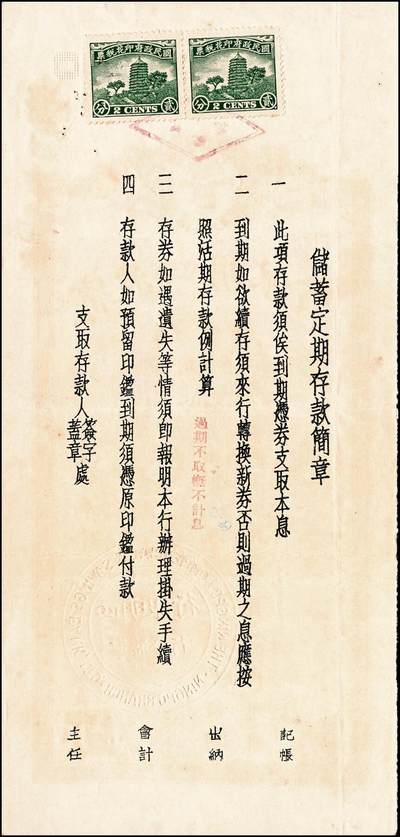 國民政府印花稅票
國民政府印花稅票
貳 2 CENTS 分
貳 2 CENTS 分
儲蓄定期存款簡章
一 此項存款須俟到期憑券支取本息
二 到期如欲續存須來行轉換新券否則過期之息應按
照活期存款例計算
過期不取概不計息
三 存券如遇遺失等情須即報明本行辦理掛失手續
四 存款人如預留印鑑到期須憑原印鑑付款
支取存款人簽字蓋章處
記帳
出納
會計
主任